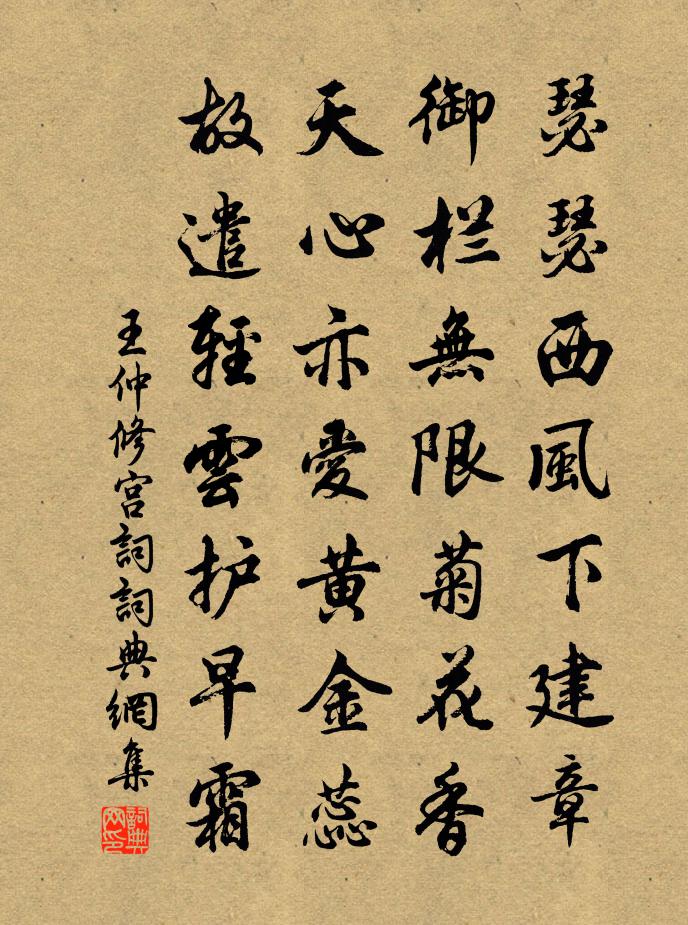 瑟瑟西風下建章
御栏無限菊花香
天心亦愛黃金蕊
故遣輕雲护早霜
王仲修宫詞詞典網集
詞典網印